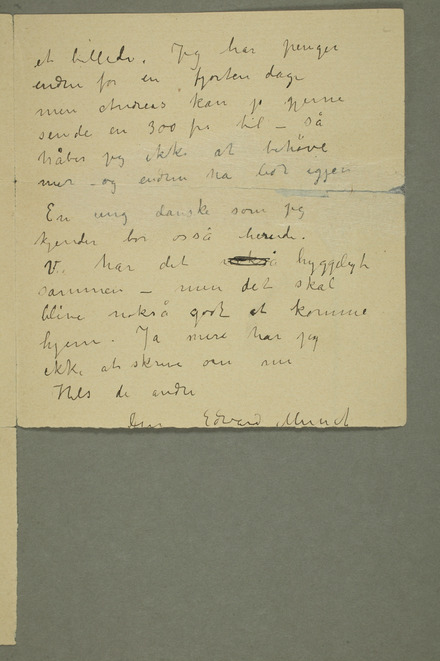 et billede. Jeg har penger
endnu for en fjorten dage
men Andreas kan jo gjerne
sende en 300 frs til – så
håber jeg ikke at behöve
mer – og endnu ha lidt igjen
En ung danske som jeg
kjender bor også herude.
V. har det hyggeligt
sammen – men det skal
blive nokså godt at komme
hjem. Ja mere har jeg
ikke at skrive om nu
Hils de andre
Din Edvard Munch